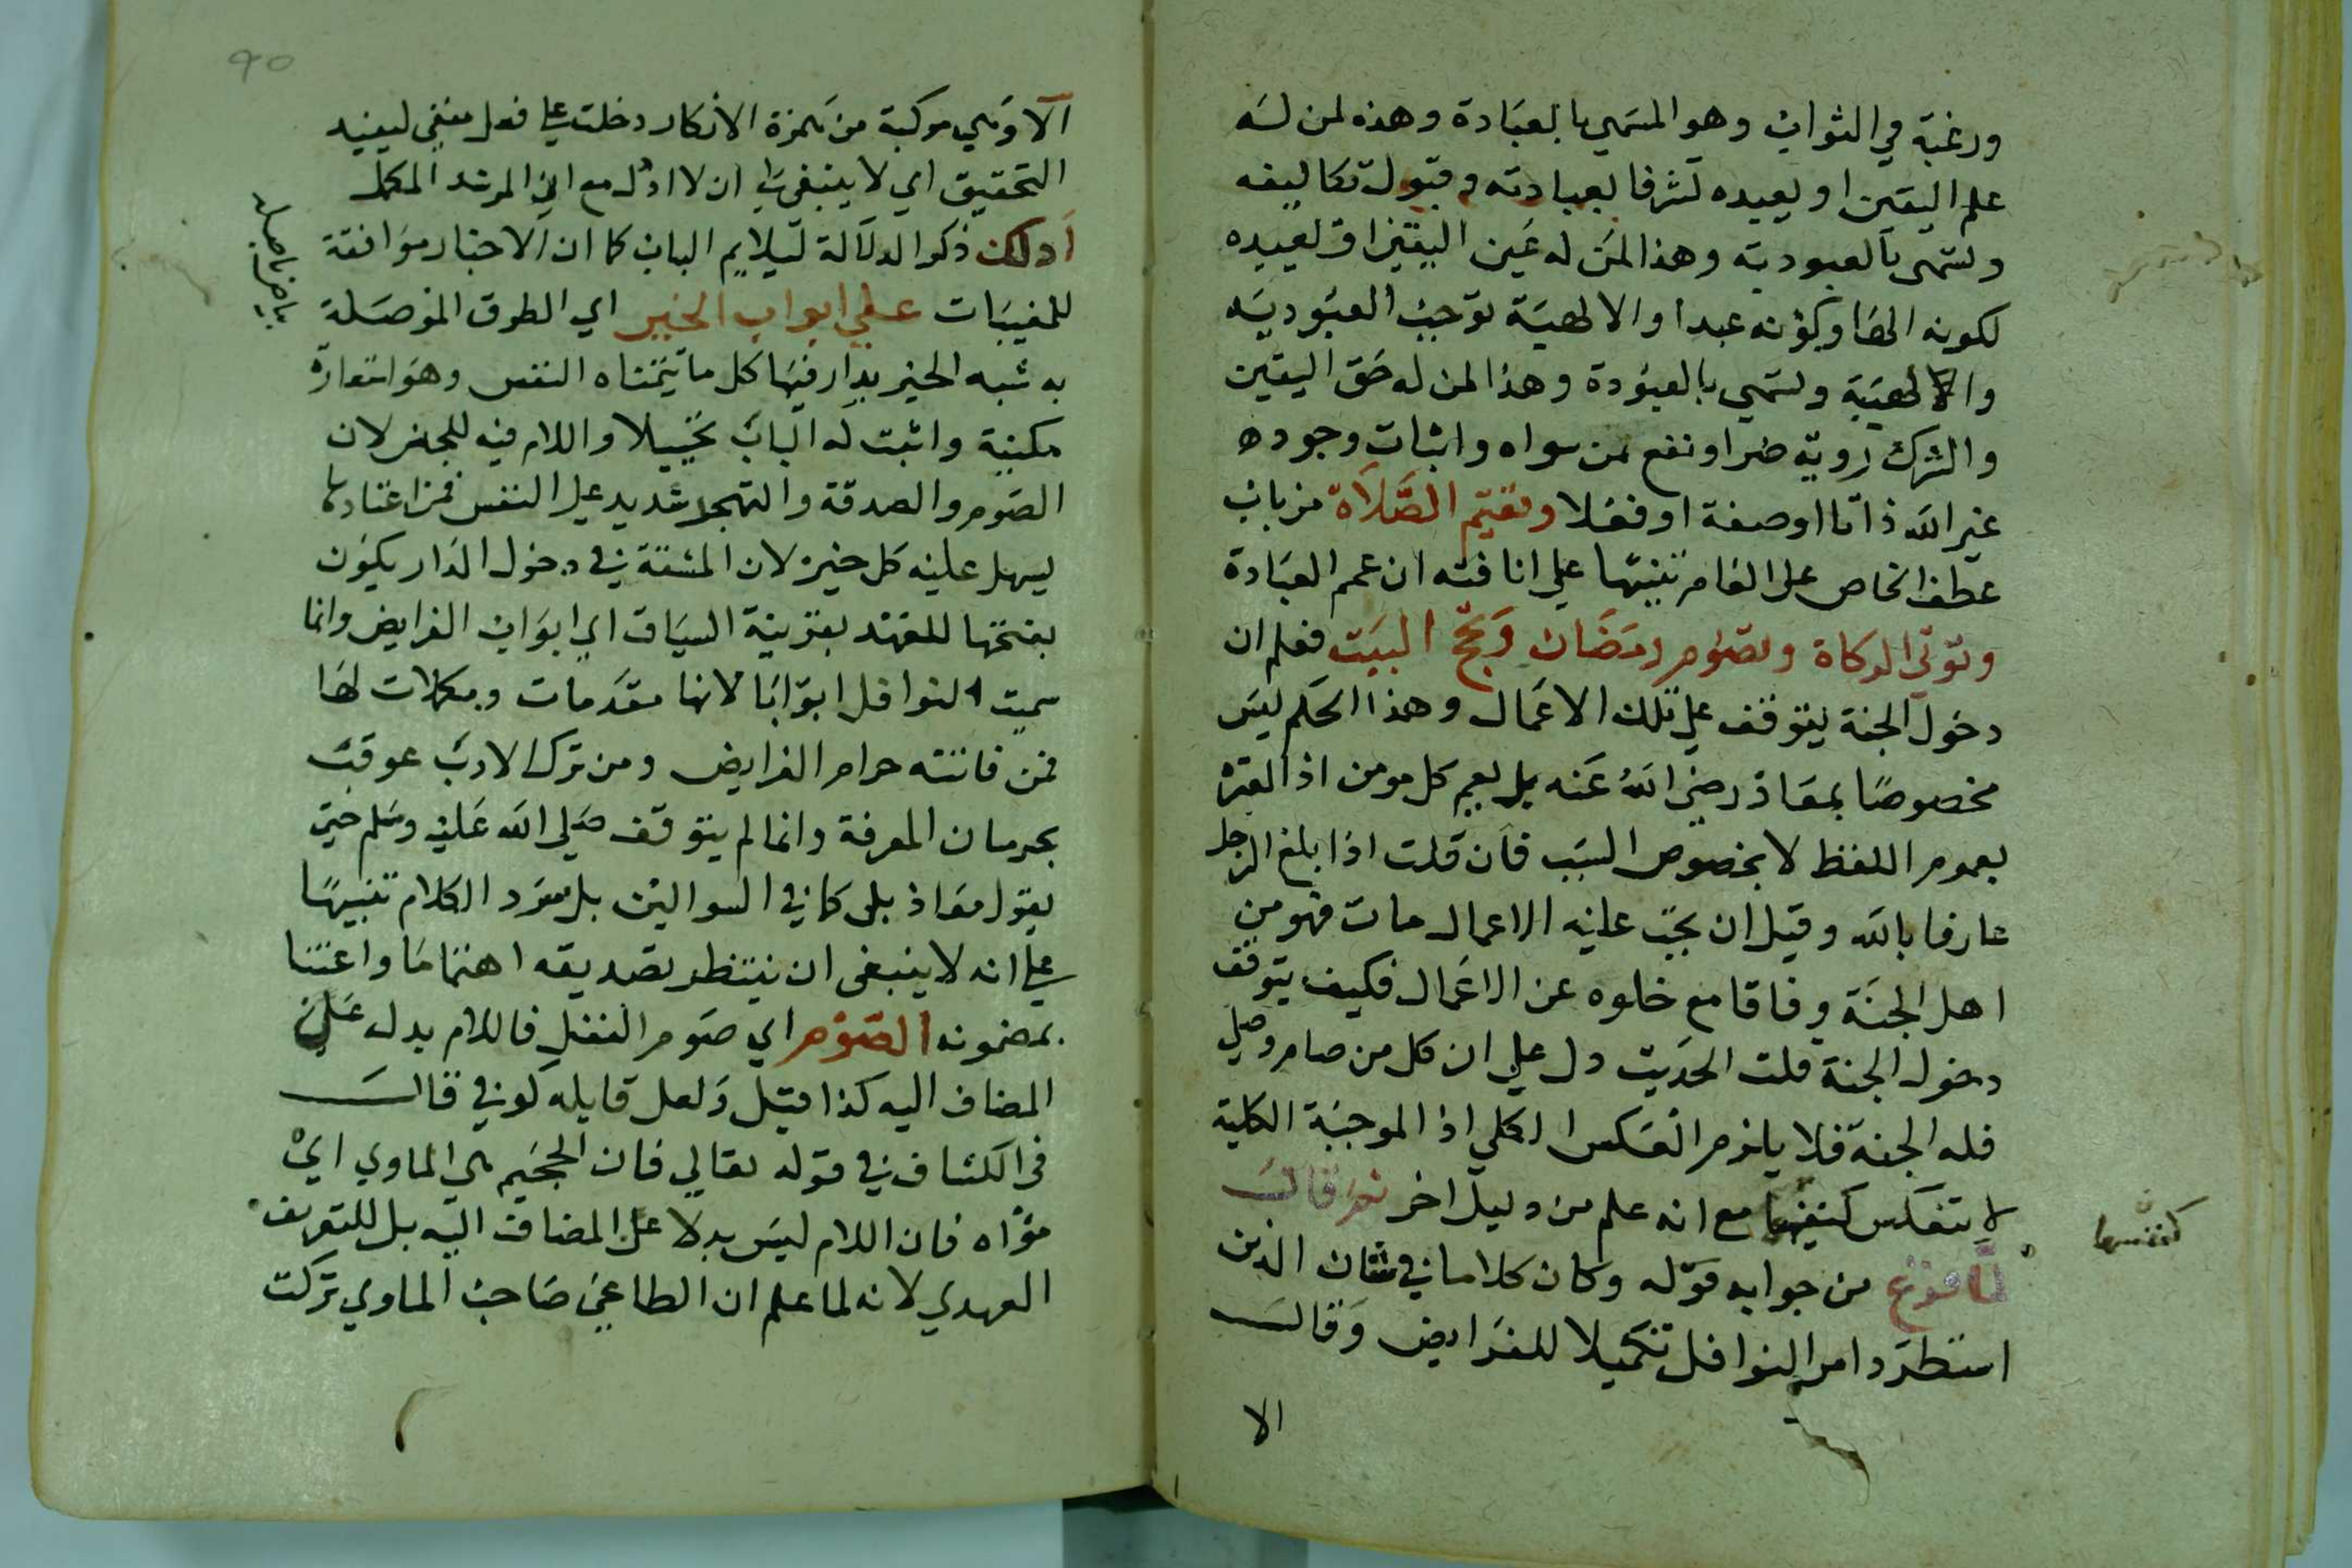 ورغبة في الثواب وهو المسمي بالعبادة وهذه لمن له
علم اليقين او يعبده تشرفا بعبادته وقبول تكاليفه
وتسمى بالعبودية وهذا لمن له عين اليقين او لعبيده
لكونه الها وكونه عبدا والالهية توجب العبودية
والالهية وتسمي بالعبودة وهذا لمن له حق اليقين
والشرك روية ضر او نفع لمن سواه واثبات وجوده
غير الله ذاتا او صفة او فعلا وتقيم الصلاة من باب
عطف الخاص على العام تنبيها علي انافته ان عمم العبادة
وتوتى الزكاة وتصوم رمضان وتحج البيت فعلم ان
دخول الجنة يتوقف علي تلك الاعمال وهذا الحكم ليس
مخصوصا بمعاذ رضي الله عنه بل يعم كل مومن اذ العبرة
بعموم اللفظ لا بخصوص السبب فان قلت اذا بلغ الرجل
عارفا بالله وقيل ان يجب عليه الاعمال مات فهو من
اهل الجنة وفاقا مع خلوه عن الاعمال فكيف يتوقف
دخول الجنة قلت الحديث دل علي ان كل من صام وصلي
فله الجنة فلا يلزم العكس الكلي اذ الموجبة الكلية
لا تنعكس كنفسها مع انه علم من دليل اخر ثم قال
كنفسها
لما فرغ من جوابه قوله وكان كلاما في شان الدين
استطرد امر النوافل تكميلا للفرايض وقال
الا
90
الا وهي مركبة من همزة الانكار دخلت علي فعل منفي ليفيد
التحقيق اي لا ينبغي لي ان لا ادل مع اني المرشد المكمل
ادلك ذكر الدلالة ليلايم الباب كما ان الاخبار موافقة
للمغيبات علي ابواب الخير اي الطرق الموصلة
به شبه الخير بدار فيها كل ما تتمناه النفس وهو استعارة
مكنية واثبت له الباب تخييلا واللام فيه للجنس لان
الصوم والصدقة والتهجد شديد علي النفس فمن اعتادها
يسهل عليه كل خير لان المشقة في دخول الدار يكون
بفتحها للعهد بقرينة السياق اي ابواب الفرايض وانما
سميت النوافل ابوابا لانها مقدمات ومكملات لها
فمن فاتته حرام الفرايض ومن ترك الادب عوقب
بحرمان المعرفة وانما لم يتوقف صلي الله عليه وسلم حتي
يقول معاذ بلى كما في السوالين بل سرد الكلام تنبيها
علي انه لا ينبغي ان ينتظر تصديقه اهتماما واعتنا
بمضمونه الصوم اي صوم النفل فاللام بدل علي
المضاف اليه كذا قيل ولعل قايله كوني قال
في الكشاف في قوله تعالي فان الجحيم هي الماوي اي
ماواه فان اللام ليس بدلا عن المضاف اليه بل للتعريف
العهدي لانه لما علم ان الطاغي صاحب الماوي تركت